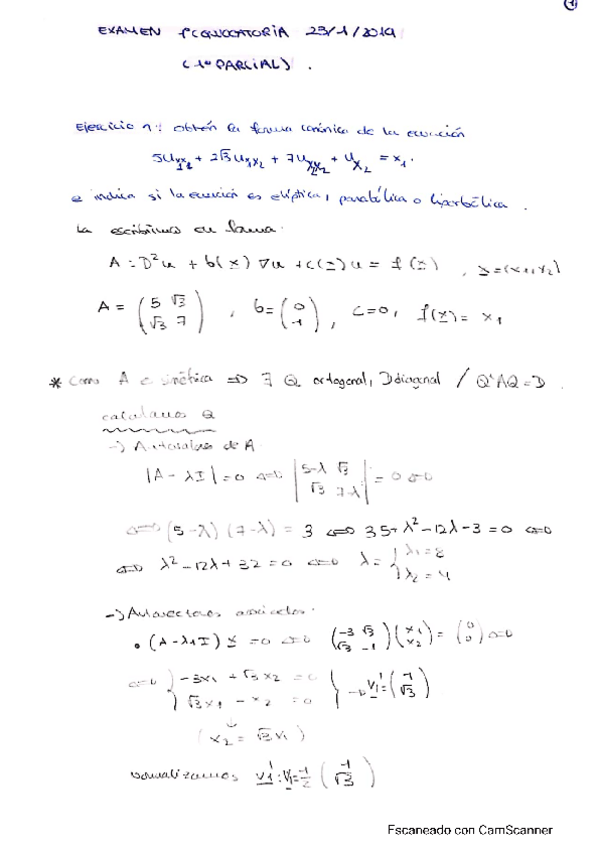 1
EXAMEN 1ª CONVOCATORIA 23/1/2019
(1º PARCIAL).
Ejercicio 1: Obtén la forma canónica de la ecuación
5u_{x1x1} + 2√3u_{x1x2} + 7u_{x2x2} + u_{x2} = x1.
e indica si la ecuación es elíptica, parabólica o hiperbólica.
La escribimos en forma:
A:D²u + b(x)∇u + c(x)u = f(x), x=(x1,x2)
A = (5 √3 / √3 7), b=(0 / 1), c=0, f(x) = x1
* Como A es simétrica => ∃ Q ortogonal, D diagonal / QᵗAQ=D.
calculamos Q
-> Autovalores de A
|A-λI|=0 <=> |5-λ √3 / √3 7-λ| = 0 <=>
<=> (5-λ)(7-λ) = 3 <=> 35+λ²-12λ-3=0 <=>
<=> λ²-12λ+32=0 <=> λ={λ1=8 / λ2=4
-> Autovectores asociados:
• (A-λ1I)x=0 <=> (-3 √3 / √3 -1)(x1 / x2) = (0 / 0) <=>
<=> {-3x1+√3x2=0 / √3x1-x2=0} -> v1=(1 / √3)
(x2=√3x1)
normalizamos
Escaneado con CamScanner